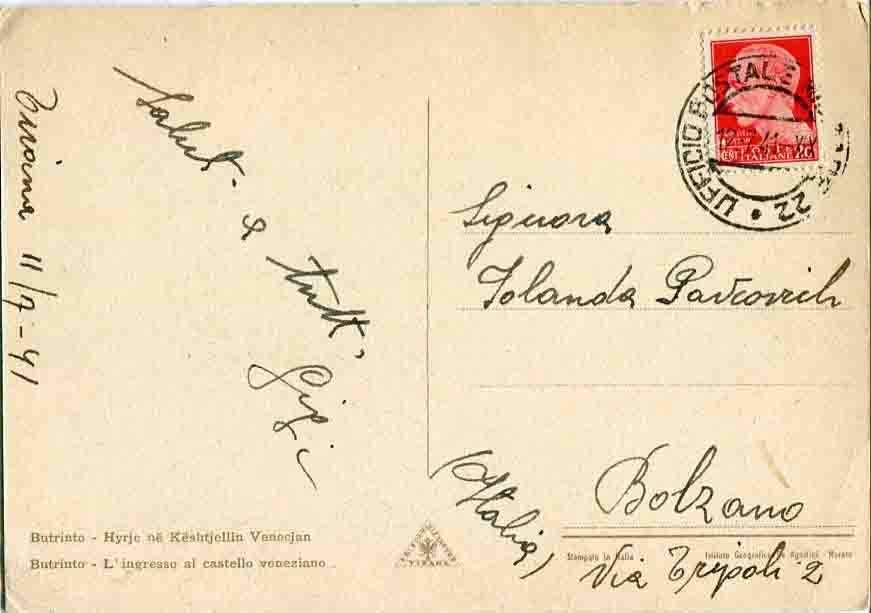 Tirana 11/7-41
Saluti a
tutti
Gigi
Signora
Iolanda Pavcovich
Bolzano
Via Tripoli 2
(Italia)
UFFICIO POSTALE
22
POSTE ITALIANE
Butrinto - Hyrje në Kështjellin Venecjan
Butrinto - L'ingresso al castello veneziano
TIRANA
Stampato in Italia
Istituto Geografico De Agostini - Novara